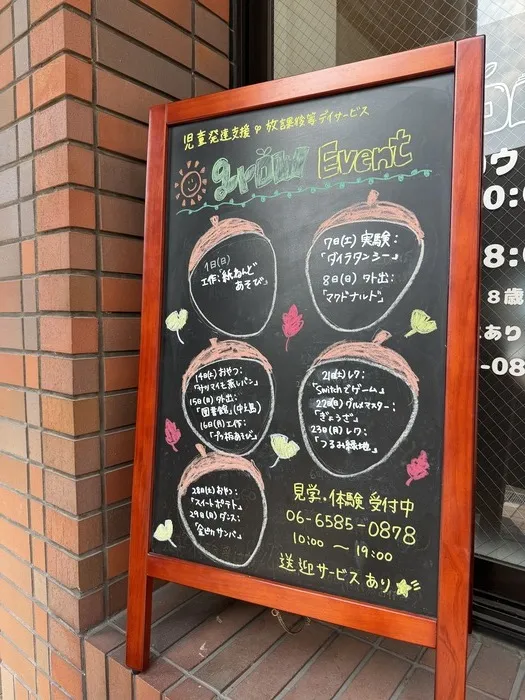 児童発達支援 放課後等デイサービス
grow Event
1日(日)
工作:「紙ねんど
あそび」
7日(土)実験:
「ダイラタンシー」
8日(日)外出:
「マクドナルド」
14日(土)おやつ:
「サツマイモ蒸しパン」
15日(日)外出:
「図書館」(中之島)
16日(月)工作:
あそび」
21日(土)レク:
「Switchでゲーム」
22日(日)グルメマスター:
「ぎょうざ」
23日(月)レク:
「つるみ緑地」
28日(土)おやつ:
「スイートポテト」
29日(日)ダンス:
「金ピカサンバ」
見学・体験 受付中
06-6585-0878
10:00 ~ 19:00
送迎サービスあり
ウ
0:0
8:
8歳
あり
-08